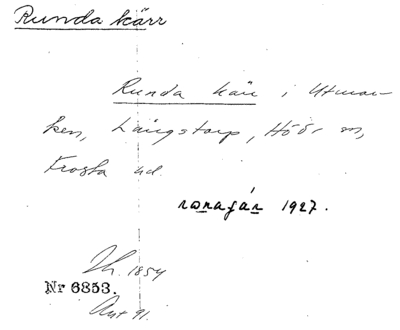 Runda kärr
Runda kärr i Utmar-
ken, Långstorp, Höör sn,
Frosta hd.
1927.
Th. 1854
Nr 6853.
Ant 91.